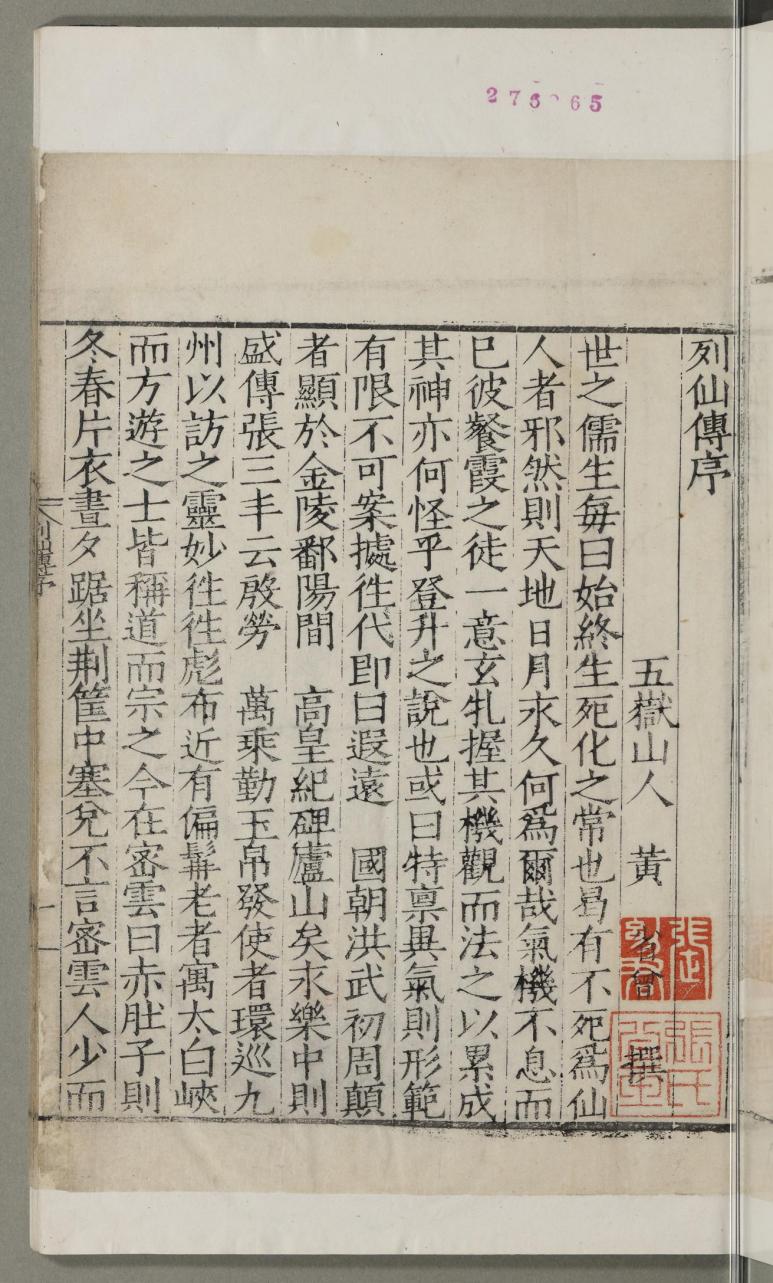 列仙傳序
五嶽山人　黃　省曾　撰
世之儒生每曰始終生死化之常也曷有不死爲仙
人者邪然則天地日月永久何爲爾哉氣機不息而
已彼餐霞之徒一意玄牝握其機觀而法之以累成
其神亦何怪乎登升之說也或曰特禀異氣則形範
有限不可案據徃代即曰遐遠　國朝洪武初周顛
者顯於金陵鄱陽間　高皇紀碑廬山矣永樂中則
盛傳張三丰云殷勞　萬乘勤玉帛發使者環巡九
州以訪之靈妙徃徃彪布近有偏髯老者寓太白峽
而方遊之士皆稱道而宗之今在密雲曰赤肚子則
冬春片衣晝夕踞坐荆筐中塞兊不言密雲人少而
列仙傳序
一
張氏